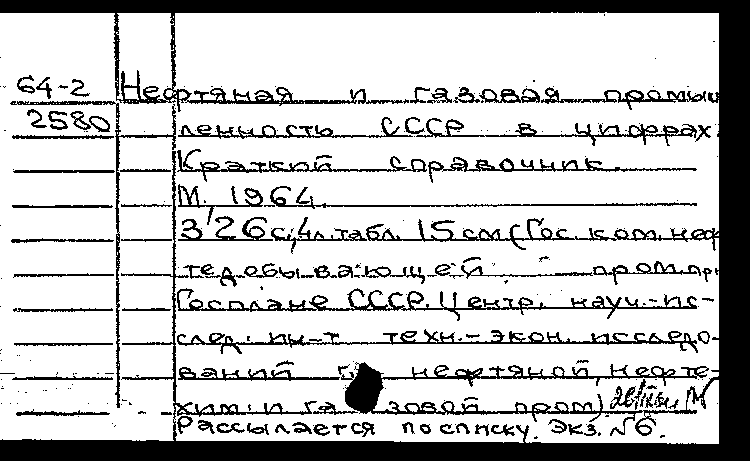 64-2 Нефтяная и газовая промыш
2580 ленность СССР в цифрах.
Краткий справочник.
М. 1964.
326 с; 4л. табл. 15 см (Гос. ком. неф
тедобывающей пром. при
Госплане СССР. Центр. науч.-ис-
след. ин-т техн.-экон. исследо-
ваний нефтяной, нефте-
хим. и газовой пром)
Рассылается по списку. Экз. №6.